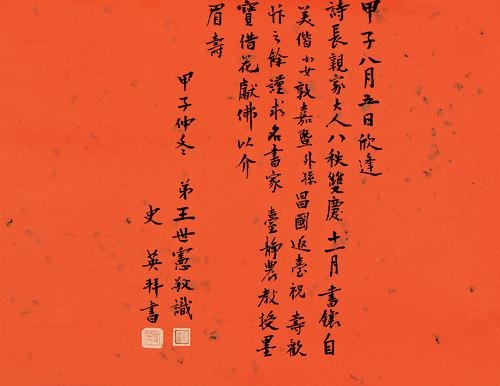 甲子八月五日欣逢
詩長親家大人八秩雙慶十一月書鑲自
美偕小女敦嘉暨外孫昌國返臺祝壽歡
忭之餘謹求名書家臺靜農教授墨
寶借花獻佛以介
眉壽
甲子仲冬 弟王世憲敬識
史英拜書